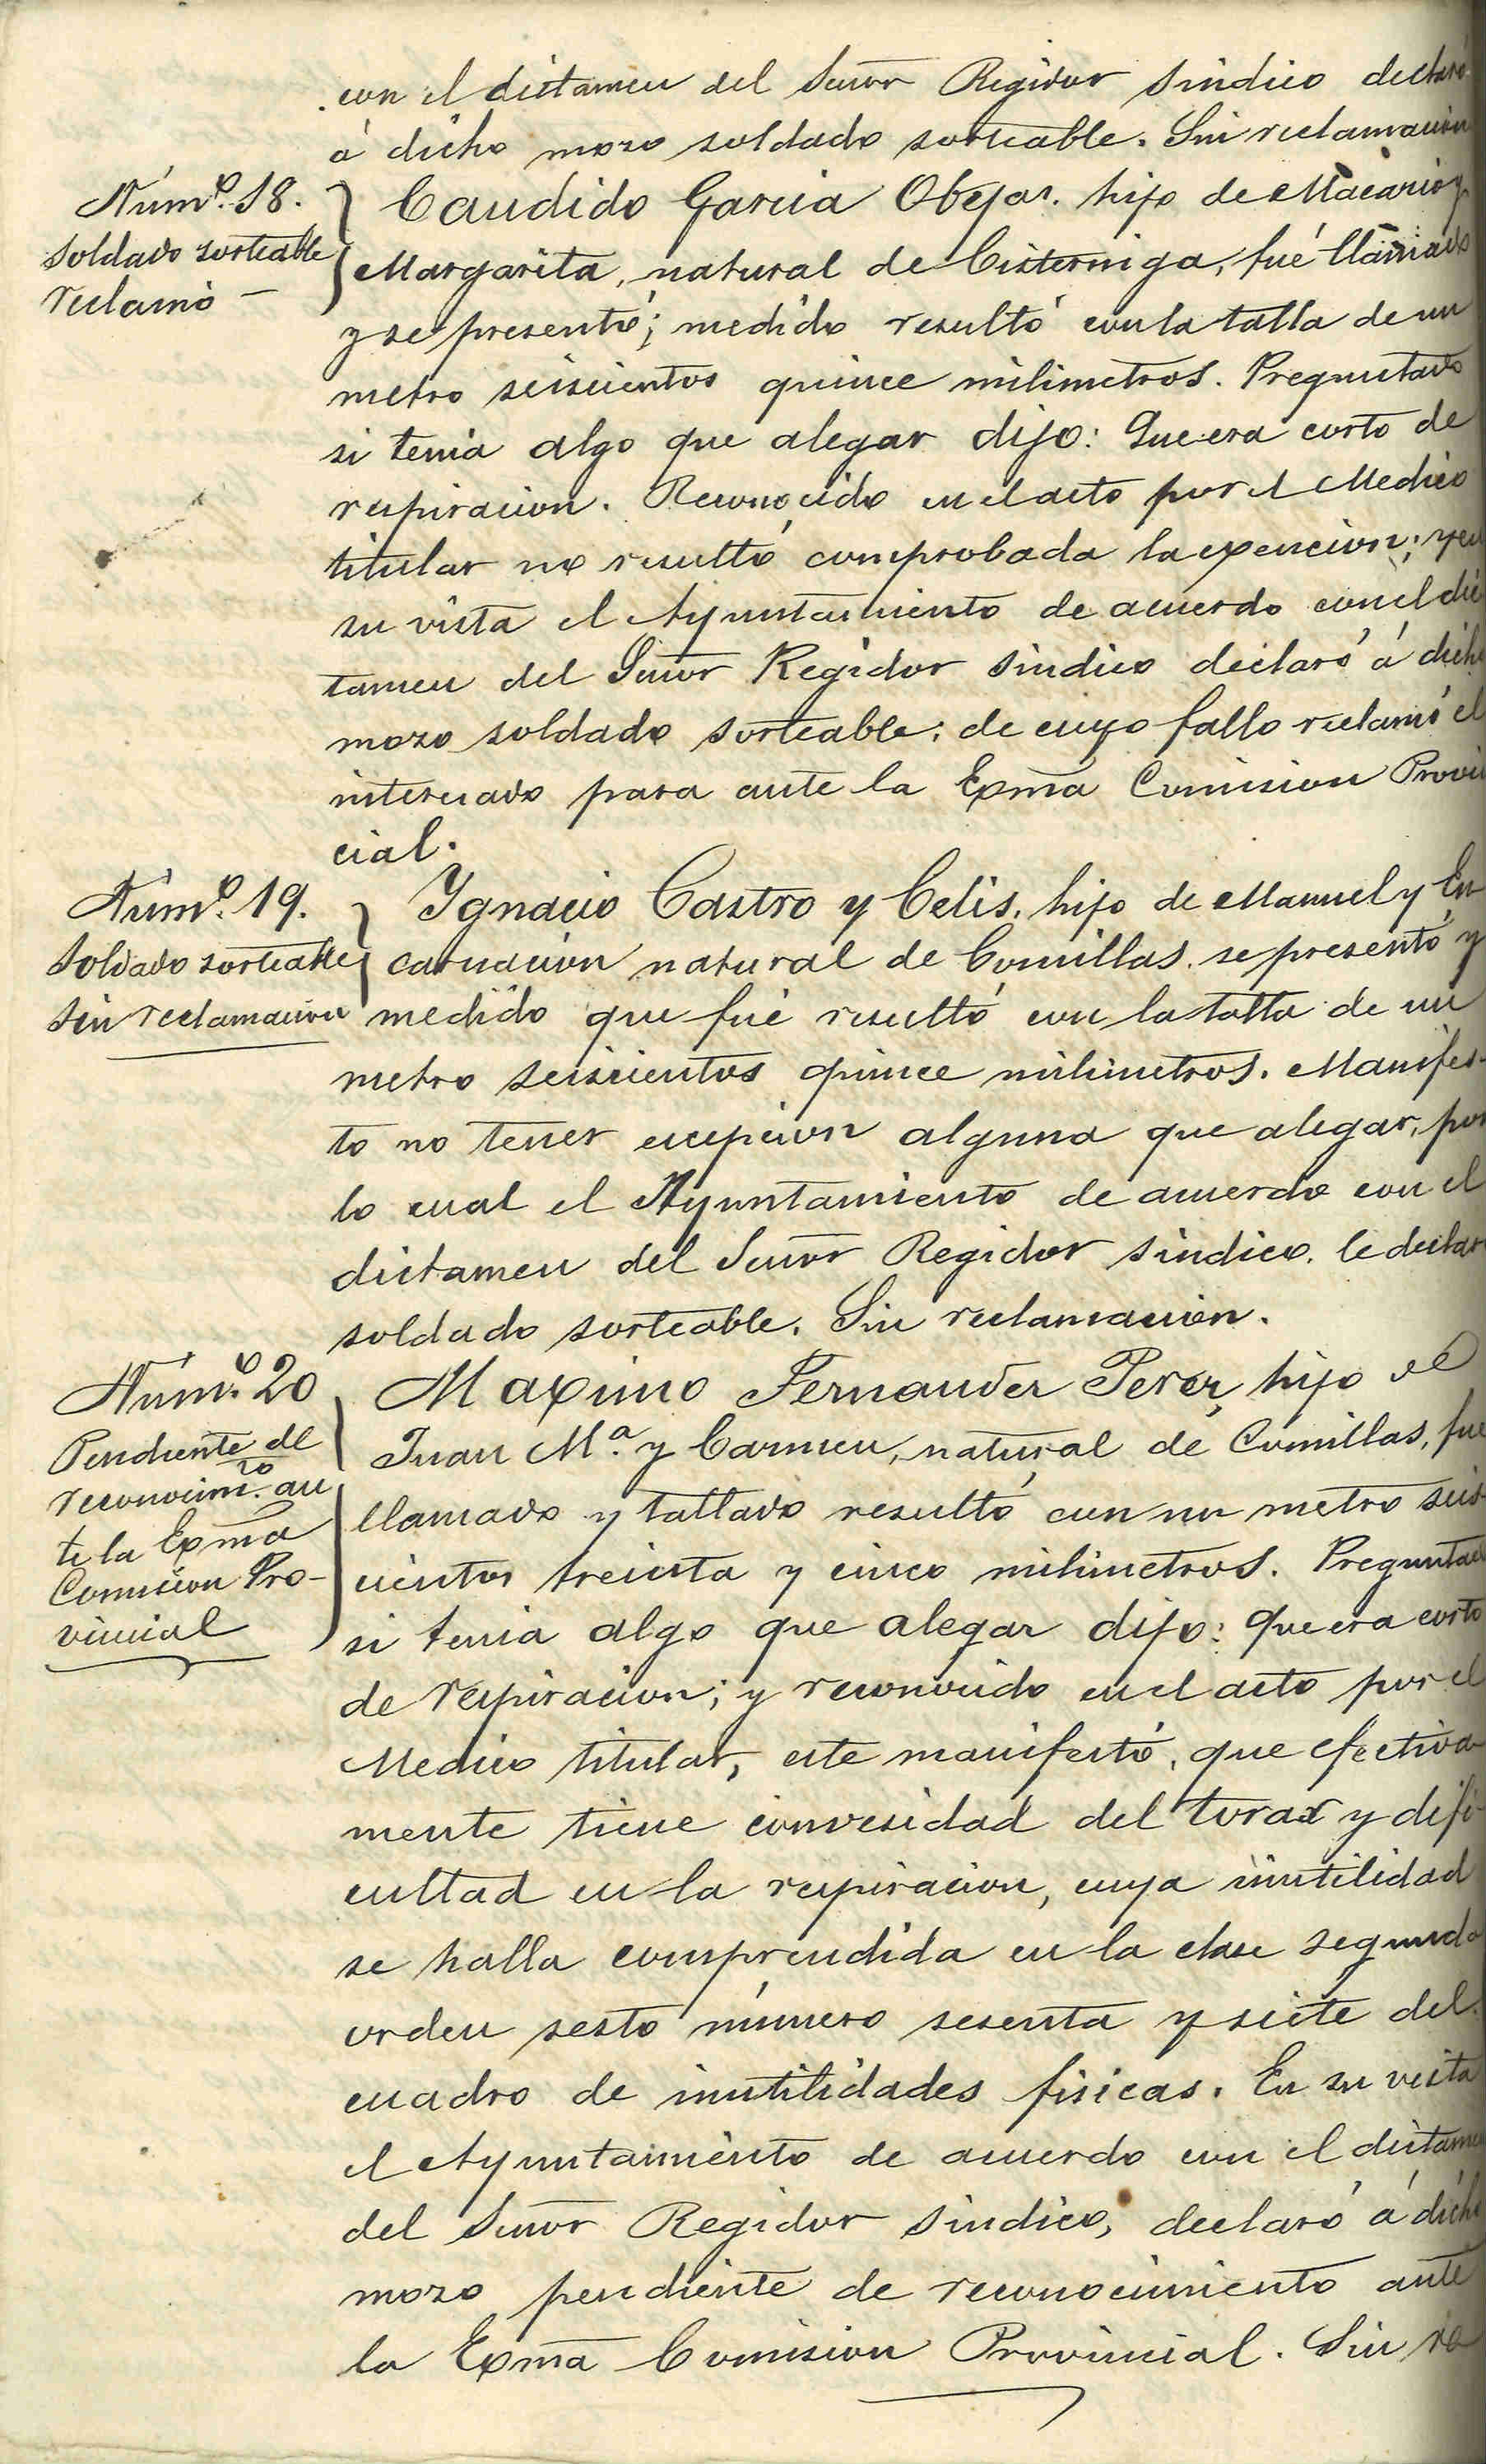 con el dictamen del Señor Regidor Sindico declaró
á dicho mozo soldado sorteable. Sin reclamacion
Núm.º 18.
Soldado sorteable
reclamó —
Candido Garcia Obejar. hijo de Macario y
Margarita, natural de Cisterniga, fué llamado
y se presentó; medido resultó con la talla de un
metro seiscientos quince milimetros. Preguntado
si tenia algo que alegar dijo: Que era corto de
respiracion. Reconocido en el acto por el Medico
titular no resultó comprobada la exencion; y en
su vista el Ayuntamiento de acuerdo con el dic
tamen del Señor Regidor Sindico declaró á dicho
mozo soldado sorteable; de cuyo fallo reclamó el
interesado para ante la Exma Comision Provin
cial.
Núm.º 19.
Soldado sorteable
Sin reclamacion
Ygnacio Castro y Celis. hijo de Manuel y En
carnacion natural de Comillas. se presentó y
medido que fué resultó con la talla de un
metro seiscientos quince milimetros. Manifes-
to no tener excepcion alguna que alegar, por
lo cual el Ayuntamiento de acuerdo con el
dictamen del Señor Regidor Sindico. le declaró
soldado sorteable. Sin reclamacion.
Núm.º 20
Pendiente de
reconocim.to an
te la Exma
Comision Pro-
vincial
Maximo Fernandez Perez, hijo de
Juan M.ª y Carmen, natural de Comillas, fué
llamado y tallado resultó con un metro seis-
cientos treinta y cinco milimetros. Preguntado
si tenia algo que alegar dijo: que era corto
de respiracion; y reconocido en el acto por el
Medico titular, este manifestó, que efectiva
mente tiene convesidad del torax y difi-
cultad en la respiracion, cuya inutilidad
se halla comprendida en la clase segunda
orden sesto número sesenta y siete del
cuadro de inutilidades fisicas. En su vista
el Ayuntamiento de acuerdo con el dictamen
del Señor Regidor Sindico, declaró á dicho
mozo pendiente de reconocimiento ante
la Exma Comision Provincial. Sin re